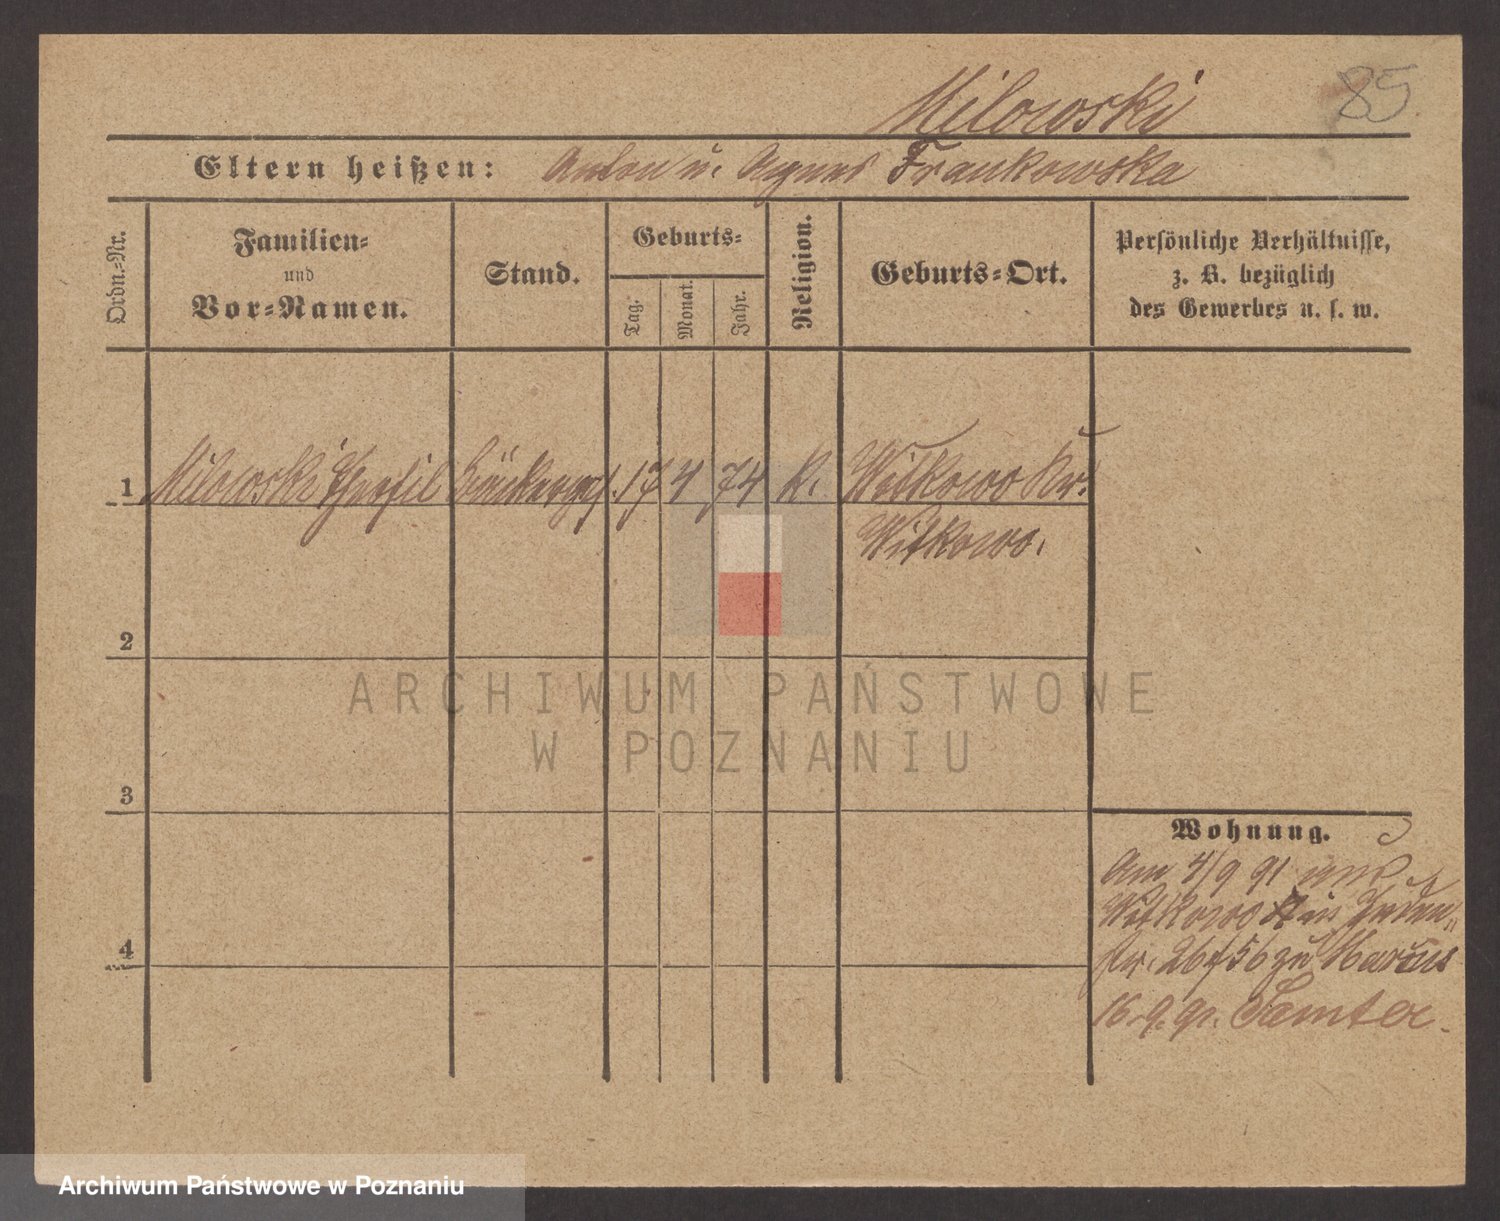 Milowski 85
Eltern heißen: Anton u. Agnes Frankowska
Ordn.-Nr.
Familien-
und
Vor-Namen.
Stand.
Geburts-
Tag.
Monat.
Jahr.
Religion.
Geburts-Ort.
Persönliche Verhältnisse,
z. B. bezüglich
des Gewerbes u. s. w.
1 Milowski Theofil Bäckergs. 17 4 74 K. Witkowo Kr.
Witkowo.
2
ARCHIWUM PAŃSTWOWE
W POZNANIU
3
Wohnung.
Am 4/9 91 von
Witkowo in Juden-
str. 26/56 zu Marcus
16.9.91. Samter.
4
Archiwum Państwowe w Poznaniu